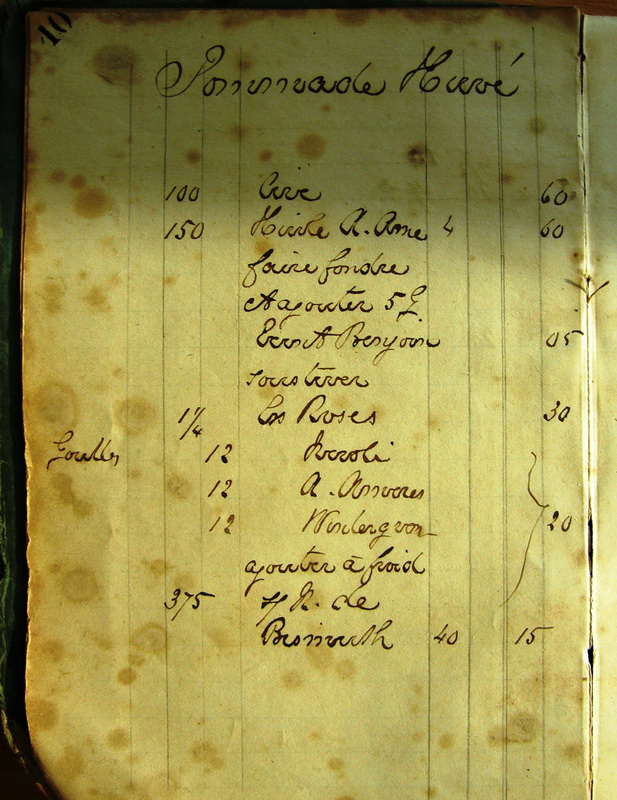 10
Pommade Hervé
100 Cire 60
150 Huile A. Ame 4 60
faire fondre
Ajouter 5 G
Teint Benjoin 05
soustirer
1 1/4 Es Roses 30
Goultes 12 Neroli
12 A. Ameres
12 Wintergreen 20
ajouter à froid
375 S/ N. de
Bismuth 40 15